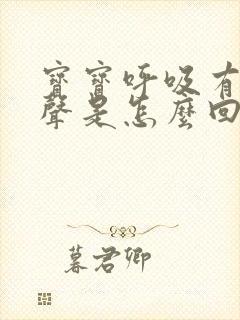 寶寶呼吸有
聲是怎麼回
暮君卿